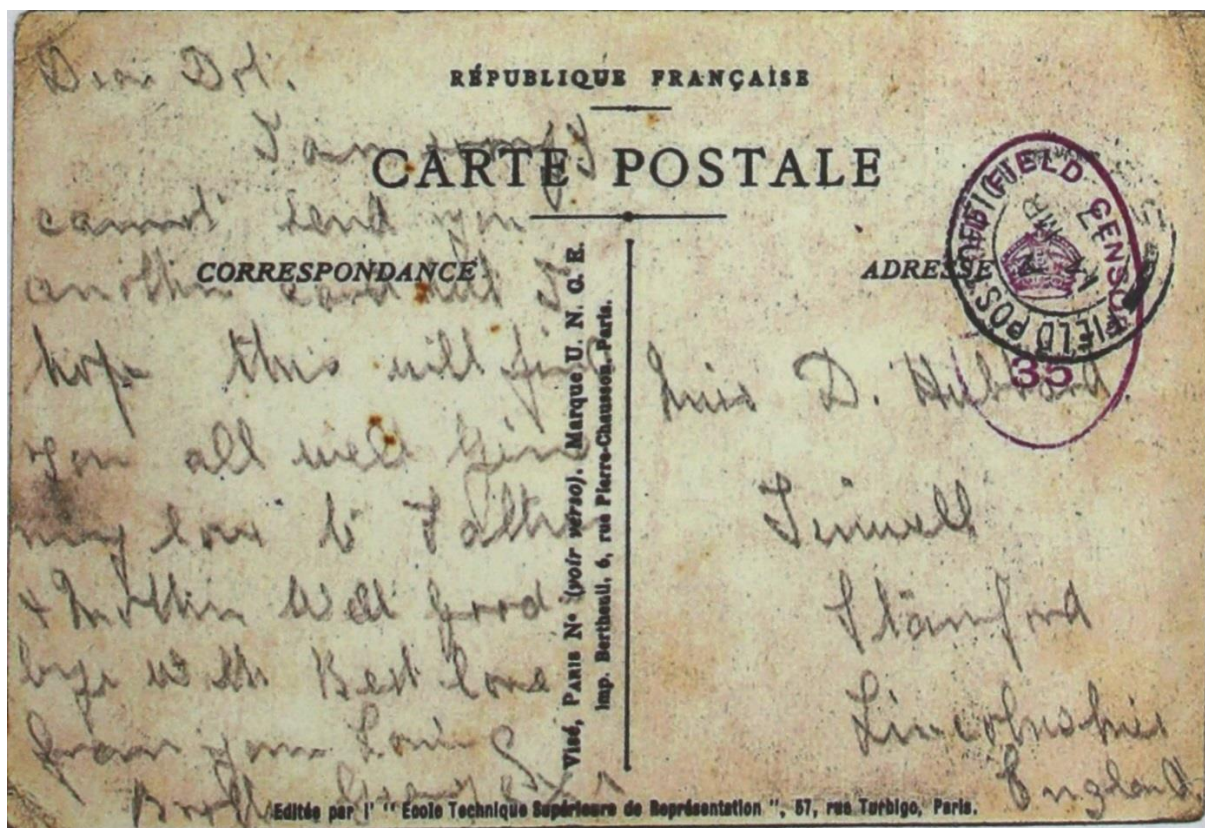 RÉPUBLIQUE FRANÇAISE
CARTE POSTALE
CORRESPONDANCE
ADRESSE
Dear Dot.
I am sorry I
cannot send you
another card but I
hope this will find
you all well Give
my love to Father
& Mother Well good
bye with Best love
from your Loving
Visé, PARIS Nº (voir verso). Marque U. N. G. E.
Imp. Bertheuil, 6, rue Pierre-Chausson, Paris.
FIELD CENSOR
35
FIELD POST OFFICE
Miss D. Hubbard.
Tinwell
Stamford
Lincolnshire
England
Editée par l' " École Technique Supérieure de Représentation ", 57, rue Turbigo, Paris.